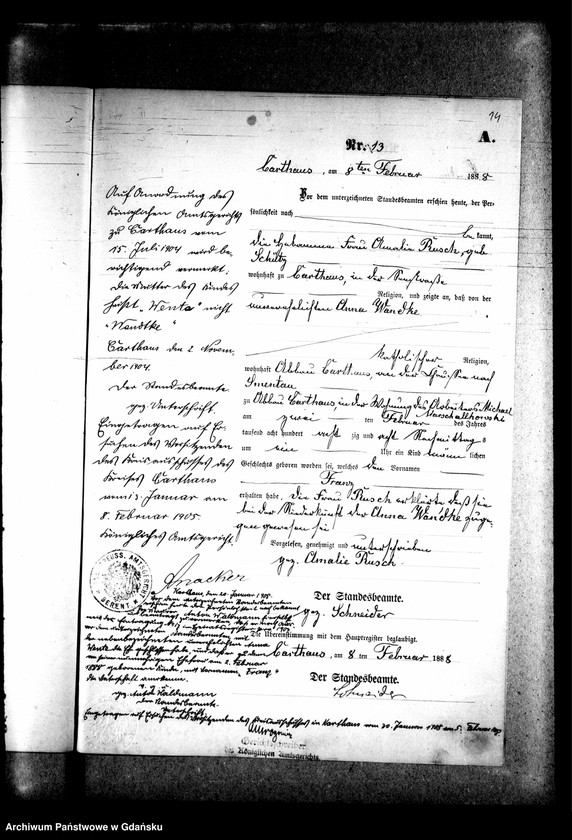 14
A.
Nr. 13
Carthaus, am 8ten Februar 1888
Vor dem unterzeichneten Standesbeamten erschien heute, der Per-
sönlichkeit nach
be kannt,
die Hebamme Frau Amalie Rusch, geb.
Schiltz
wohnhaft zu Carthaus, in der
Religion, und zeigte an, daß von der
unverehelichten Anna Wandke
katholischer Religion,
wohnhaft Abbau Carthaus, an der Chaussee nach
Smentau
zu Abbau Carthaus, in der Wohnung des Arbeiters Michael
Marschalkowski
am zwei ten Februar des Jahres
tausend acht hundert acht zig und acht Nachmittags
um ein Uhr ein Kind männ lichen
Geschlechts geboren worden sei, welches den Vornamen
Franz
erhalten habe. Die Frau Rusch erklärte daß sie
bei der Niederkunft der Anna Wandke zuge-
gen gewesen sei
Vorgelesen, genehmigt und unterschrieben
gez. Amalie Rusch.
Der Standesbeamte.
gez. Schneider
Die Übereinstimmung mit dem Hauptregister beglaubigt.
Carthaus, am 8 ten Februar 1888
Der Standesbeamte.
Schneider
Auf Anordnung des
Königlichen Amtsgerichts
zu Carthaus vom
15. Juli 1904 wird be-
richtigend vermerkt:
Die Mutter des Kindes
heißt "Wenta" nicht
"Wandtke"
Carthaus den 2. Novem-
ber 1904.
Der Standesbeamte
gez. Unterschrift.
Eingetragen auf Er-
suchen des Vorsitzenden
des Kreisausschusses des
Kreises Carthaus
vom 13. Januar am
8. Februar 1905.
Königliches Amtsgericht.
AMTSGERICHT
BERENT
Karthaus den 20. Januar 1905.
Vor dem unterzeichneten Standesbeamten
Anton
der unverehelichten Anna
Wenta die Ehe geschlossen habe, und dieser zu dem
am 2. Februar
1888 geborenen Kinde, mit Vornamen "Franz"
die Vaterschaft anerkenne.
gez. Anton
Der Standesbeamte.
Unterschrift.
Eingetragen auf Ersuchen des Vorsitzenden des Kreisausschusses in Karthaus vom 20. Januar 1905 am 5. Februar 1905
Gerichtsschreiber
des Königlichen Amtsgerichts
Archiwum Państwowe w Gdańsku